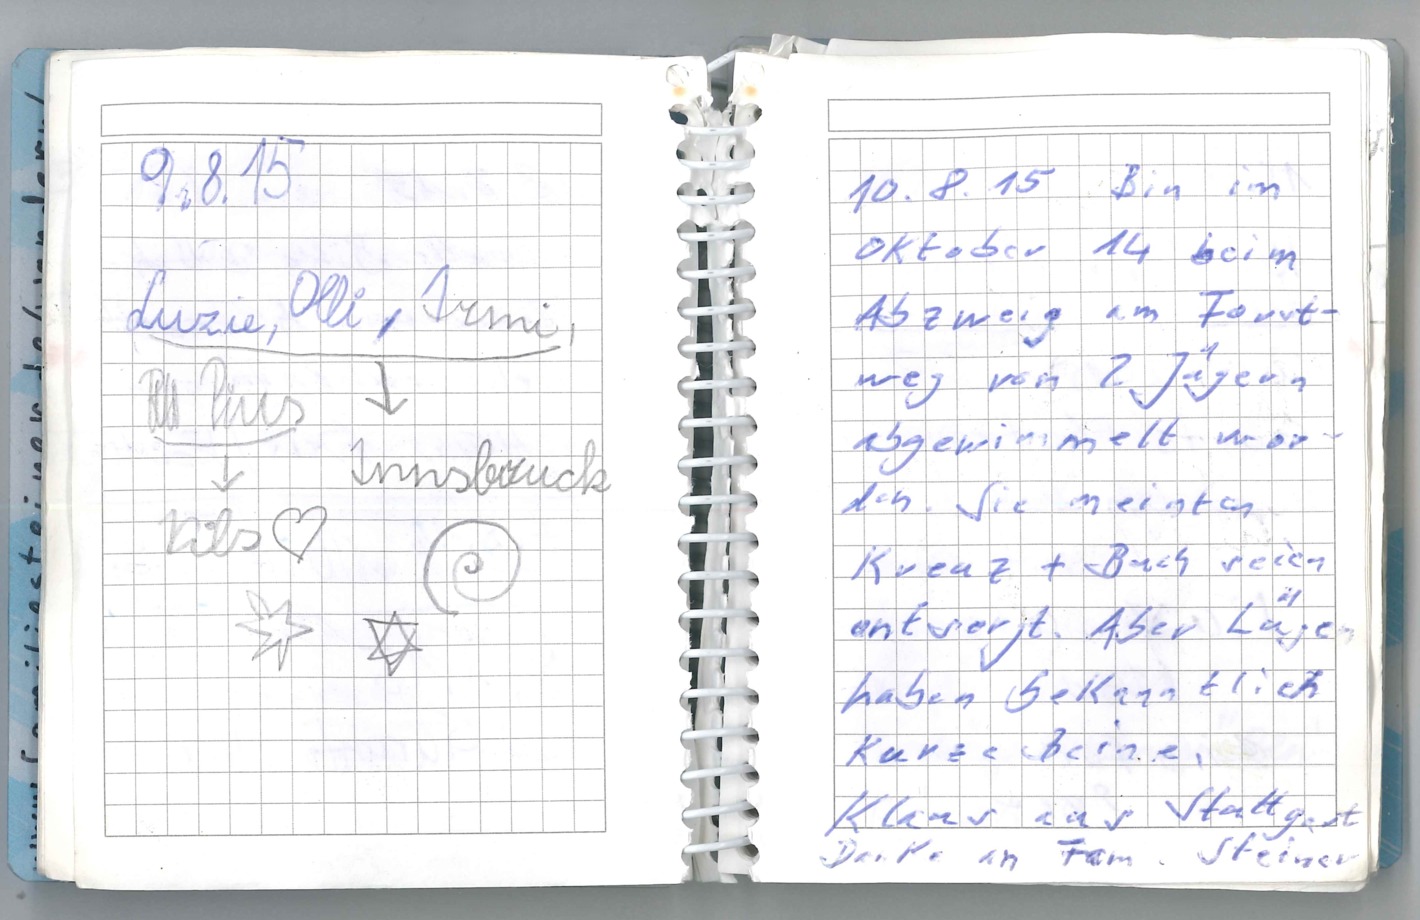 9.8.15
Luzie, Olli, Irmi,
Pius
Innsbruck
Köls
10.8.15 Bin im
Oktober 14 beim
Abzweig am Forst-
weg von 2 Jägern
abgewimmelt wor-
den. Sie meinten
Kreuz + Buch seien
entsorgt. Aber Lügen
haben bekanntlich
Kurze Beine.
Klaus aus Stuttgart
Danke an Fam. Steiner